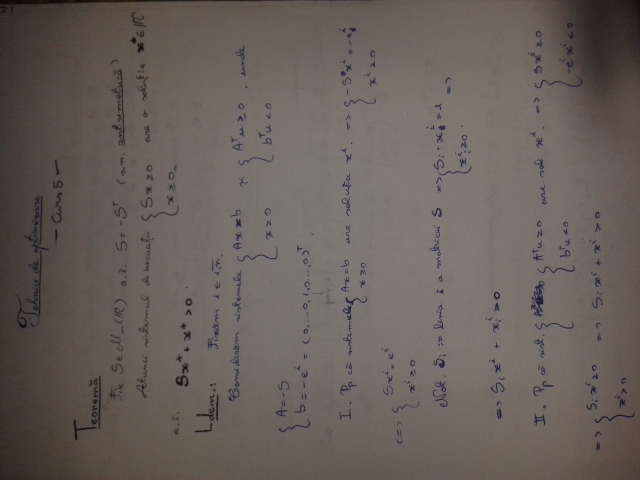 Tehnici de optimizare
— Curs 5 —
Teoremă
Fie S ∈ M_n(ℝ) a.î. S = -S^T (s.n. antisimetrică)
Atunci sistemul de inecuații { Sx ≥ 0 are o soluție x* ∈ ℝ^n
x ≥ 0_n
a.î. Sx* + x* > 0.
dem.: Fixăm i ∈ 1,n.
Considerăm sistemele { Ax = b și { A^T u ≥ 0, unde
x ≥ 0 b^T u < 0
{ A = -S
b = -e^i = (0,...,0,1,0...,0)^T.
I. Pp că sistemele { Ax = b are soluția x^i. => { -S x^i = -e^i
x ≥ 0 x^i ≥ 0
<=> { Sx^i = e^i
x^i ≥ 0
Not. S_i := linia i a matricii S => { S_i · x^i = 1 =>
x_i^i ≥ 0.
=> S_i x^i + x_i^i > 0
II. Pp că sist. { A^T u ≥ 0 are sol x^i. => { Sx^i ≥ 0
b^T u < 0 -e^i x^i < 0
=> { S_i x^i ≥ 0 => S_i x^i + x^i > 0
x^i > 0